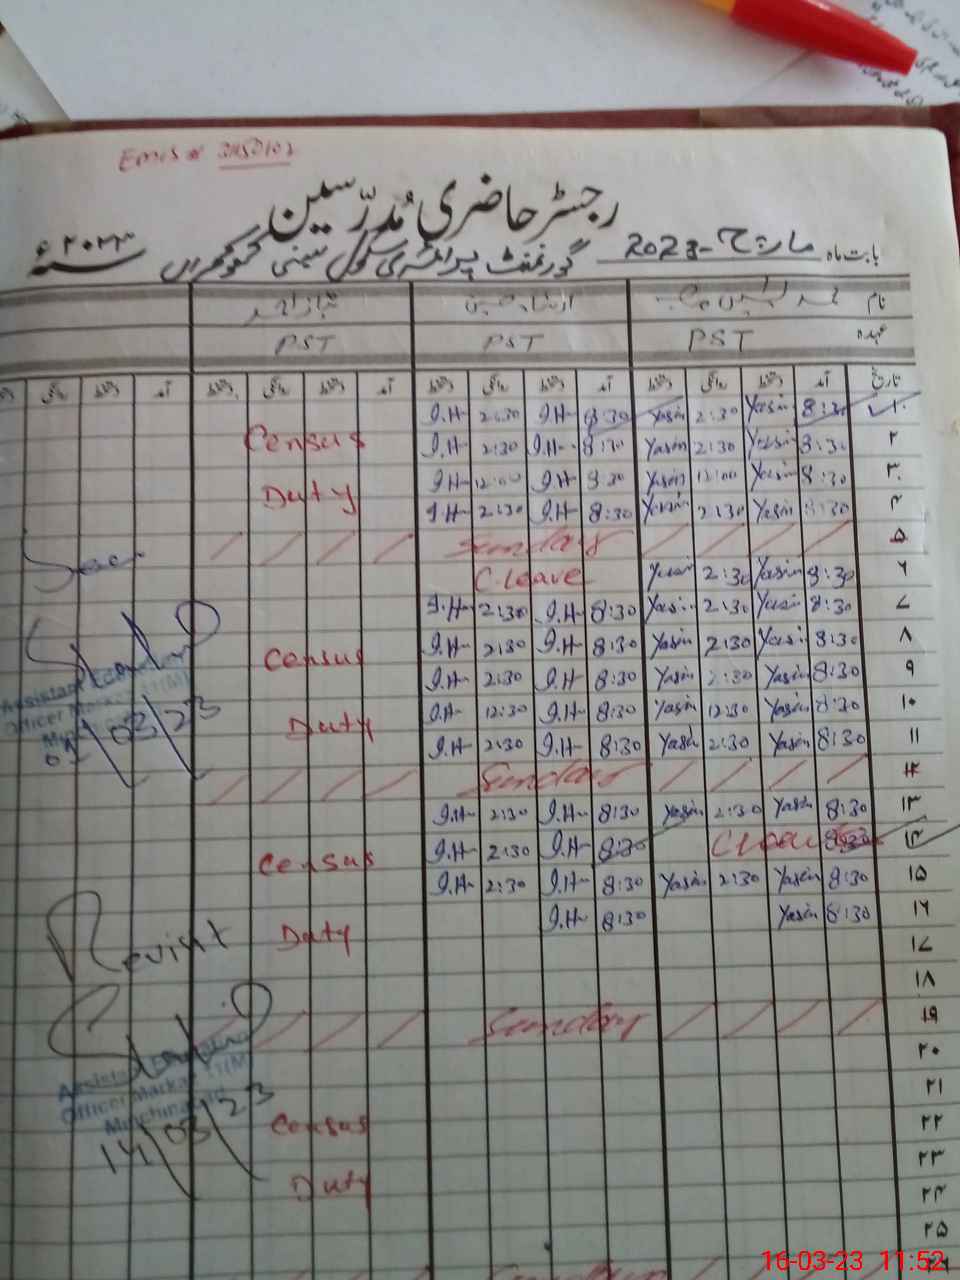 Emis #
رجسٹر حاضری مُدرّسین
بابت ماہ مارچ-2023 گورنمنٹ پرائمری سکول سنۂ ۲۰۲۳ء
نام
عہدہ PST PST PST
تاریخ آمد دستخط روانگی دستخط آمد دستخط روانگی دستخط آمد دستخط روانگی دستخط آمد دستخط روانگی
۱ 8:30 Yasin 2:30 Yasin 8:30 I.H 2:30 I.H
۲ 8:30 Yasin 2:30 Yasin 8:30 I.H 2:30 I.H Census
۳ 8:30 Yasin 12:00 Yasin 8:30 I.H 12:00 I.H
۴ 8:30 Yasin 2:30 Yasin 8:30 I.H 2:30 I.H Duty
۵ Sunday
۶ 8:30 Yasin 2:30 Yasin C.leave
۷ 8:30 Yasin 2:30 Yasin 8:30 I.H 2:30 I.H
۸ 8:30 Yasin 2:30 Yasin 8:30 I.H 2:30 I.H Census
۹ 8:30 Yasin 2:30 Yasin 8:30 I.H 2:30 I.H
۱۰ 8:30 Yasin 12:30 Yasin 8:30 I.H 12:30 I.H Duty
۱۱ 8:30 Yasin 2:30 Yasin 8:30 I.H 2:30 I.H
۱۲ Sunday
۱۳ 8:30 Yasin 2:30 Yasin 8:30 I.H 2:30 I.H
۱۴ 8:30 C leave 8:30 I.H 2:30 I.H Census
۱۵ 8:30 Yasin 2:30 Yasin 8:30 I.H 2:30 I.H
۱۶ 8:30 Yasin 8:30 I.H Duty
۱۷
۱۸
۱۹ Sunday
۲۰
۲۱
۲۲ Census
۲۳
۲۴ Duty
۲۵
Seen
Assistant Education
Officer Markaz
03/23
Revisit
Assistant Education
Officer Markaz
14/03/23
16-03-23 11:52